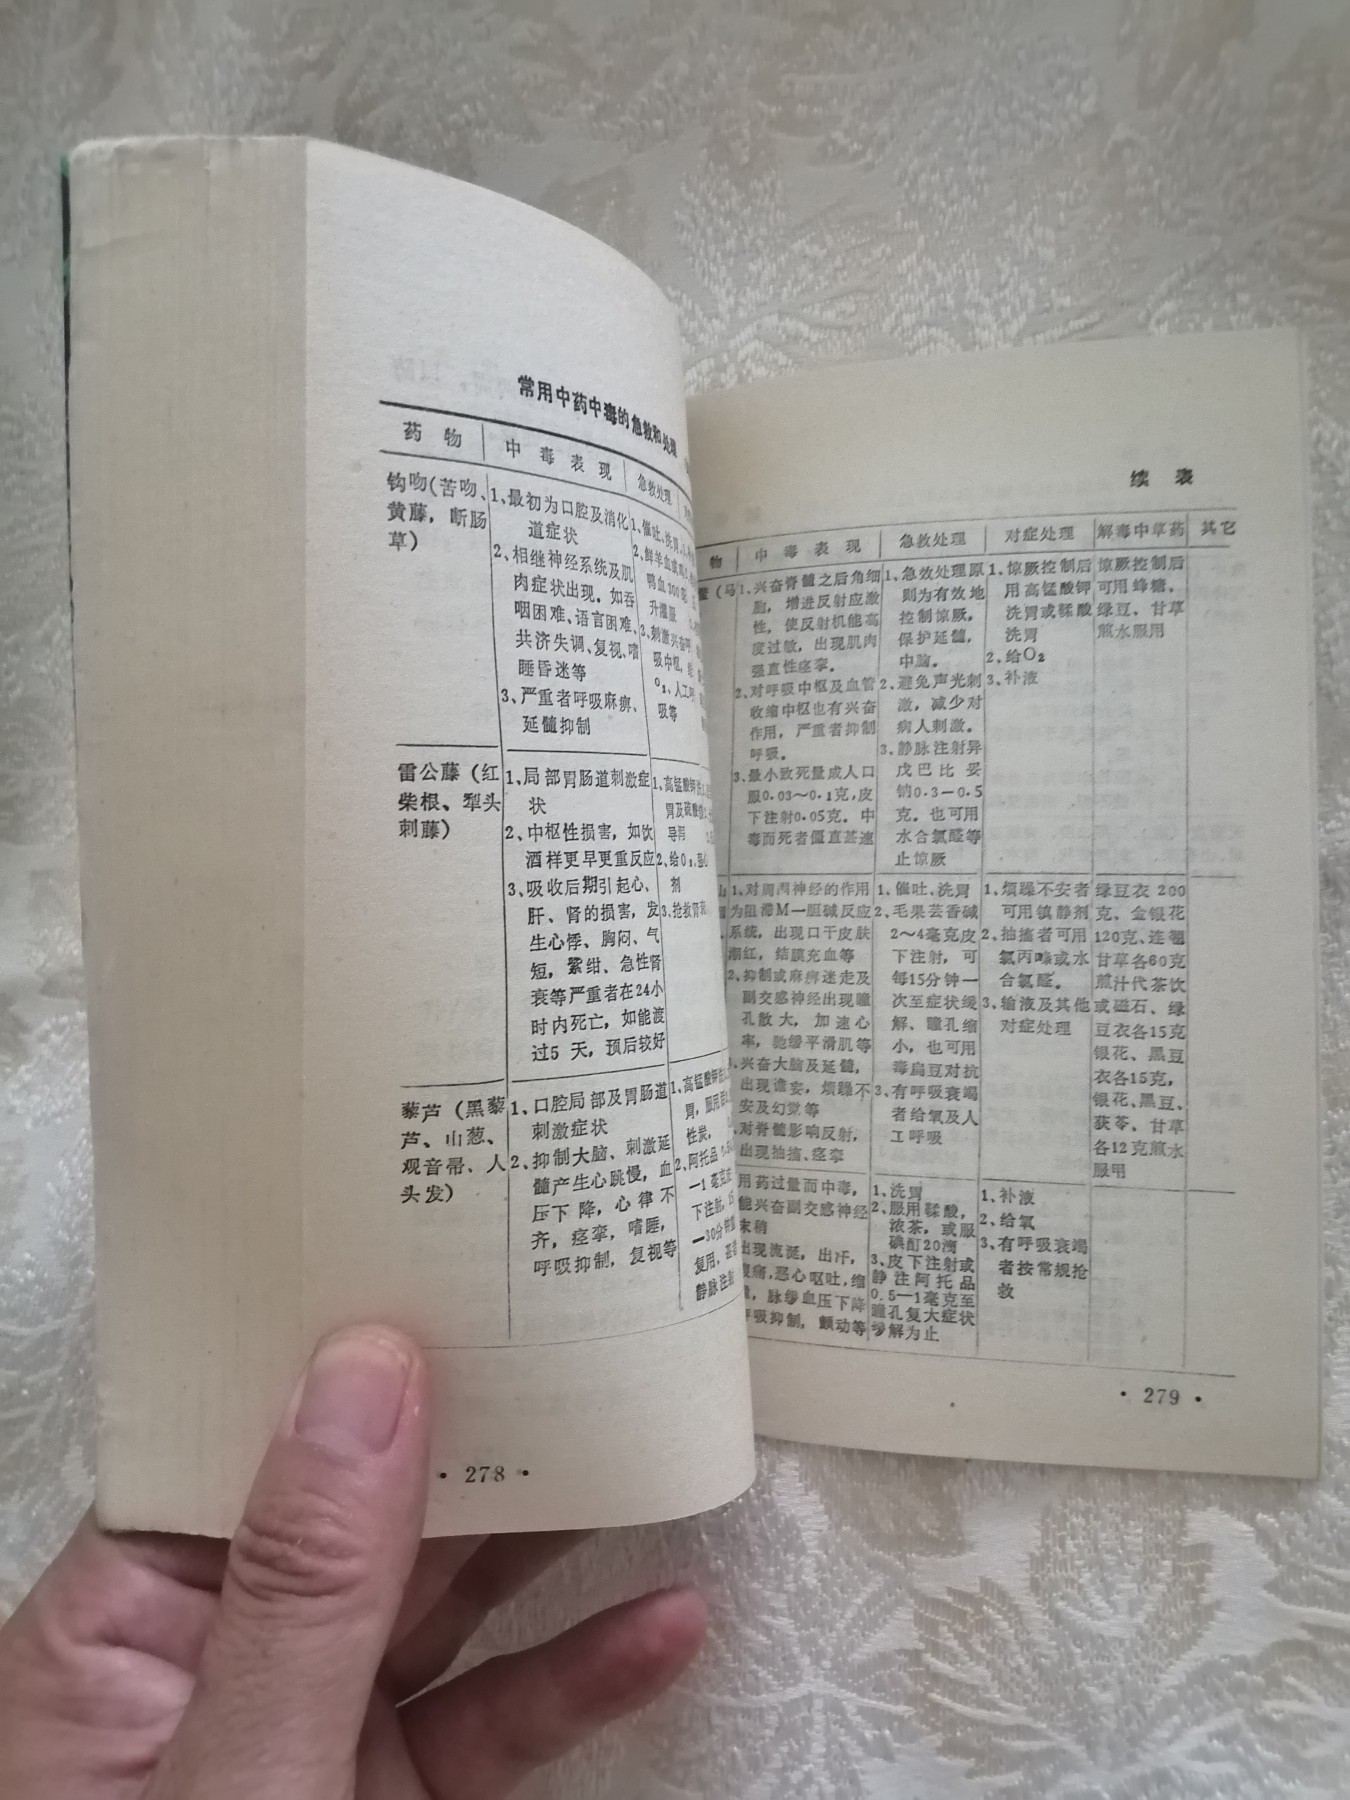 常用中药中毒的急救和处理
药物
中毒表现
急救处理
钩吻(苦吻、
黄藤，断肠
草)
1、最初为口腔及消化
道症状
2、相继神经系统及肌
肉症状出现。如吞
咽困难、语言困难、
共济失调、复视、嗜
睡昏迷等
3、严重者呼吸麻痹、
延髓抑制
1、催吐、洗胃、
2、鲜羊血或
鸭血300毫
升灌服
3、刺激兴奋呼
吸中枢，
O₂、人工呼
吸等
雷公藤（红
柴根、犁头
刺藤）
1、局部胃肠道刺激症
状
2、中枢性损害，如饮
酒样更早更重反应
3、吸收后期引起心、
肝、肾的损害，发
生心悸、胸闷、气
短，紫绀、急性肾
衰等严重者在24小
时内死亡，如能渡
过5 天，预后较好
1、高锰酸钾
胃及硫酸
导泻
2、给O₂，强心
剂
3、抢救肾衰
藜芦（黑藜
芦、山葱、
观音帚、人
头发）
1、口腔局部及胃肠道
刺激症状
2、抑制大脑、刺激延
髓产生心跳慢，血
压下降，心律不
齐，痉挛，嗜睡，
呼吸抑制，复视等
1、高锰酸钾
胃，服用
性炭。
2、阿托品
—1毫克
下注射，
—30分钟
复用，甚
静脉注射
• 278 •
续表
物
中毒表现
急救处理
对症处理
解毒中草药
其它
（马
1、兴奋脊髓之后角细
胞，增进反射应激
性，使反射机能高
度过敏，出现肌肉
强直性痉挛。
2、对呼吸中枢及血管
收缩中枢也有兴奋
作用，严重者抑制
呼吸。
3、最小致死量成人口
服0.03～0.1克，皮
下注射0.05克。中
毒而死者僵直甚速
1、急效处理原
则为有效地
控制惊厥，
保护延髓，
中脑。
2、避免声光刺
激，减少对
病人刺激。
3、静脉注射异
戊巴比妥
钠0.3—0.5
克。也可用
水合氯醛等
止惊厥
1、惊厥控制后
用高锰酸钾
洗胃或鞣酸
洗胃
2、给O₂
3、补液
惊厥控制后
可用蜂糖、
绿豆、甘草
煎水服用
1、对周围神经的作用
为阻滞M—胆碱反应
系统，出现口干皮肤
潮红，结膜充血等
2、抑制或麻痹迷走及
副交感神经出现瞳
孔散大，加速心
率，驰缓平滑肌等
兴奋大脑及延髓，
出现谵妄，烦躁不
安及幻觉等
对脊髓影响反射，
出现抽搐、痉挛
1、催吐、洗胃
2、毛果芸香碱
2～4毫克皮
下注射，可
每15分钟一
次至症状缓
解、瞳孔缩
小，也可用
毒扁豆对抗
3、有呼吸衰竭
者给氧及人
工呼吸
1、烦躁不安者
可用镇静剂
2、抽搐者可用
氯丙嗪或水
合氯醛。
3、输液及其他
对症处理
绿豆衣 200
克、金银花
120克、连翘
甘草各60克
煎汁代茶饮
或磁石、绿
豆衣各15克
银花、黑豆
衣各15克，
银花、黑豆、
茯苓、甘草
各12克煎水
服用
用药过量而中毒，
能兴奋副交感神经
末稍
出现流涎，出汗，
腹痛，恶心呕吐，缩
，脉缓血压下降
呼吸抑制，颤动等
1、洗胃
2、服用鞣酸，
浓茶，或服
碘酊20滴
3、皮下注射或
静注阿托品
0.5—1毫克至
瞳孔复大症状
缓解为止
1、补液
2、给氧
3、有呼吸衰竭
者按常规抢
救
• 279 •